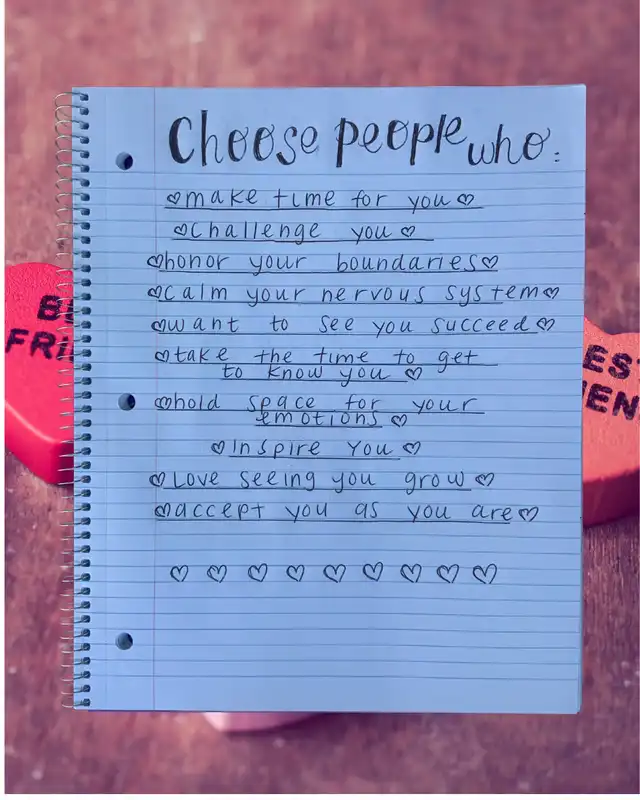 Choose people who:
♡make time for you♡
♡Challenge you♡
♡honor your boundaries♡
♡calm your nervous system♡
♡want to see you succeed♡
♡take the time to get
to know you♡
♡hold space for your
emotions♡
♡Inspire You♡
♡Love seeing you grow♡
♡accept you as you are♡
♡ ♡ ♡ ♡ ♡ ♡ ♡ ♡ ♡